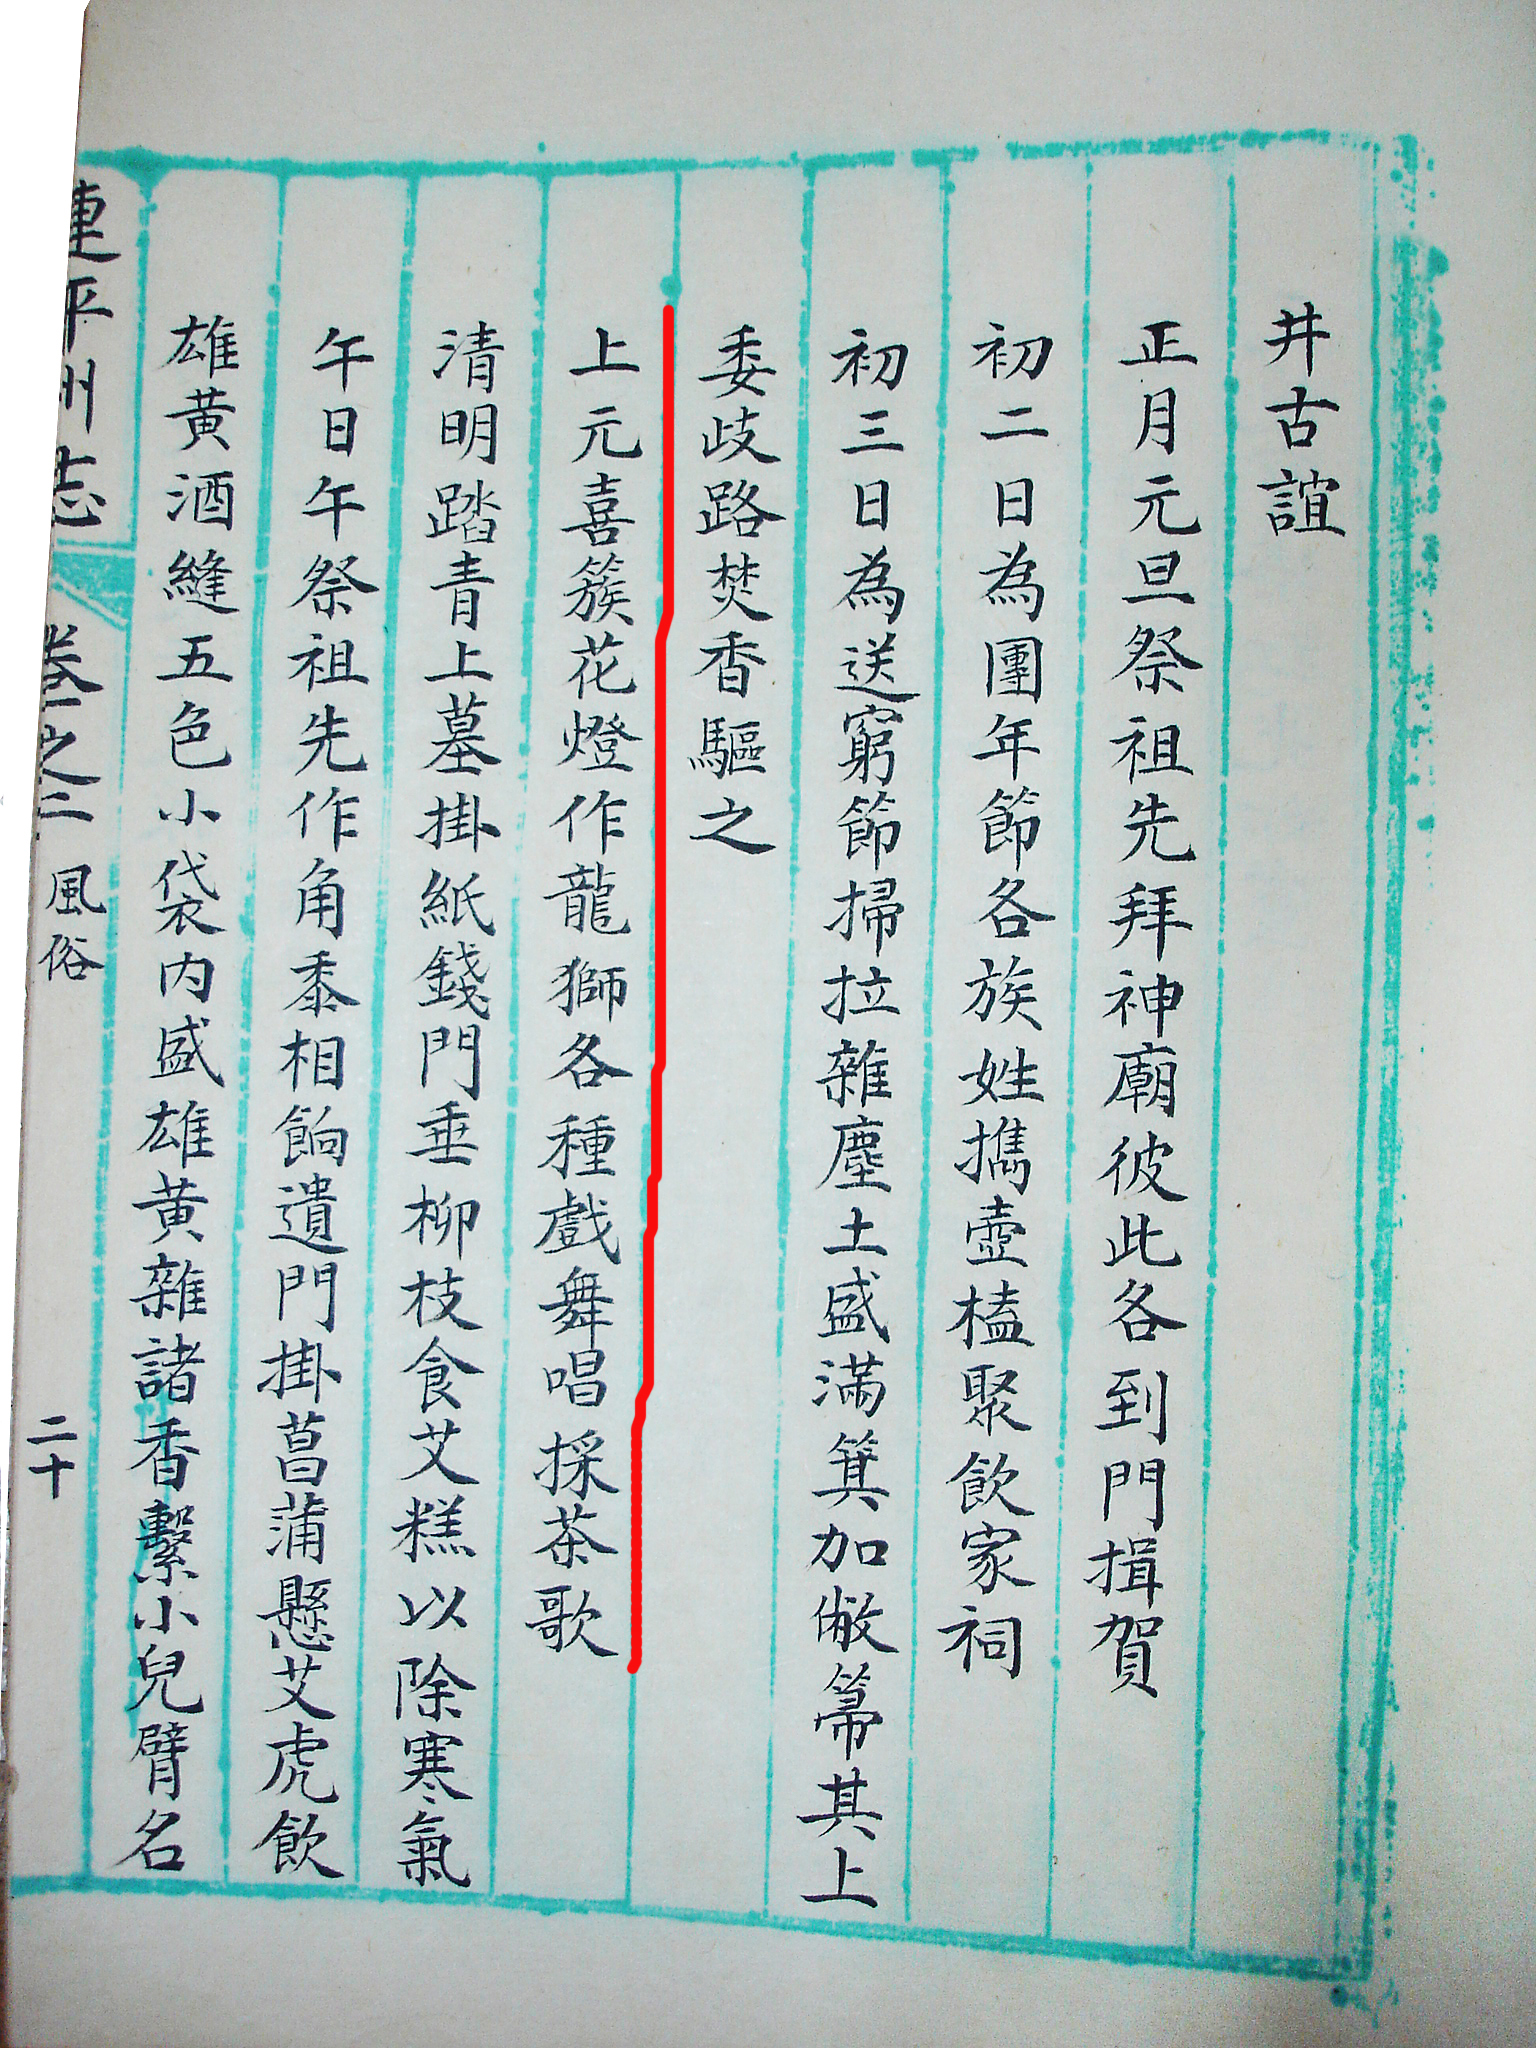 井古誼
正月元旦祭祖先拜神廟彼此各到門揖賀
初二日為團年節各族姓攜壺榼聚飲家祠
初三日為送窮節掃拉雜塵土盛滿箕加敝箒其上
委歧路焚香驅之
上元喜簇花燈作龍獅各種戲舞唱採茶歌
清明踏青上墓掛紙錢門垂柳枝食艾糕以除寒氣
午日午祭祖先作角黍相餉遺門掛菖蒲懸艾虎飲
雄黃酒縫五色小袋內盛雄黃雜諸香繫小兒臂名
連平州志 卷之二 風俗 二十